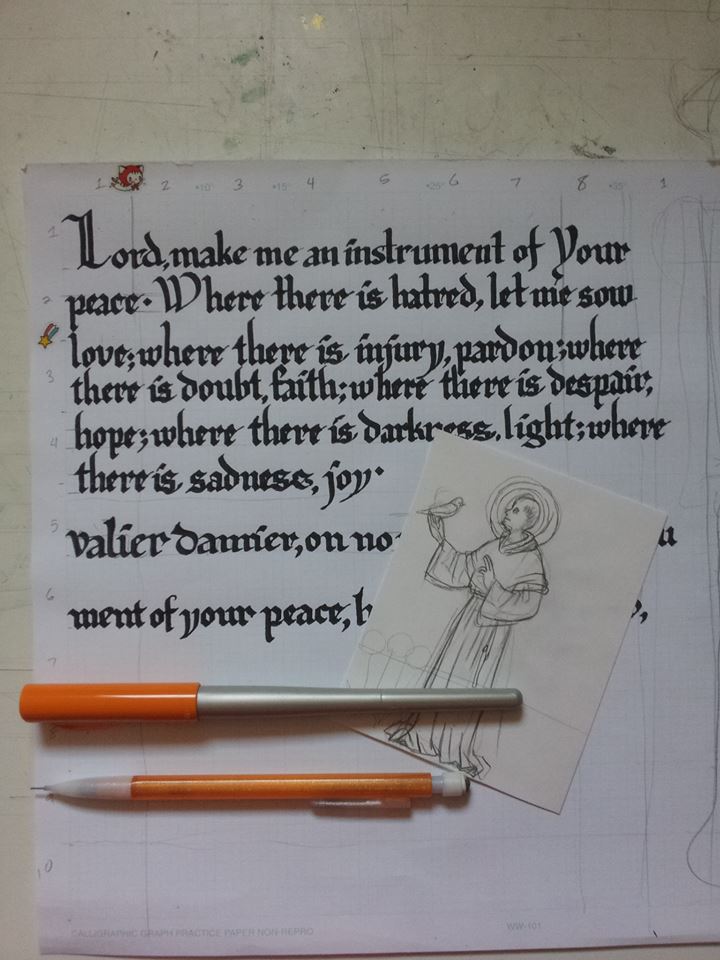 1 2 +10° 3 +15° 4 5 +25° 6 7 8 +35° 1
1
Lord, make me an instrument of Your
2
peace. Where there is hatred, let me sow
love; where there is injury, pardon; where
3
there is doubt, faith; where there is despair,
4
hope; where there is darkness, light; where
there is sadness, joy.
5
valier damier, on no
6
ment of your peace, h
7
8
10
CALLIGRAPHIC GRAPH PRACTICE PAPER NON-REPRO WW-101